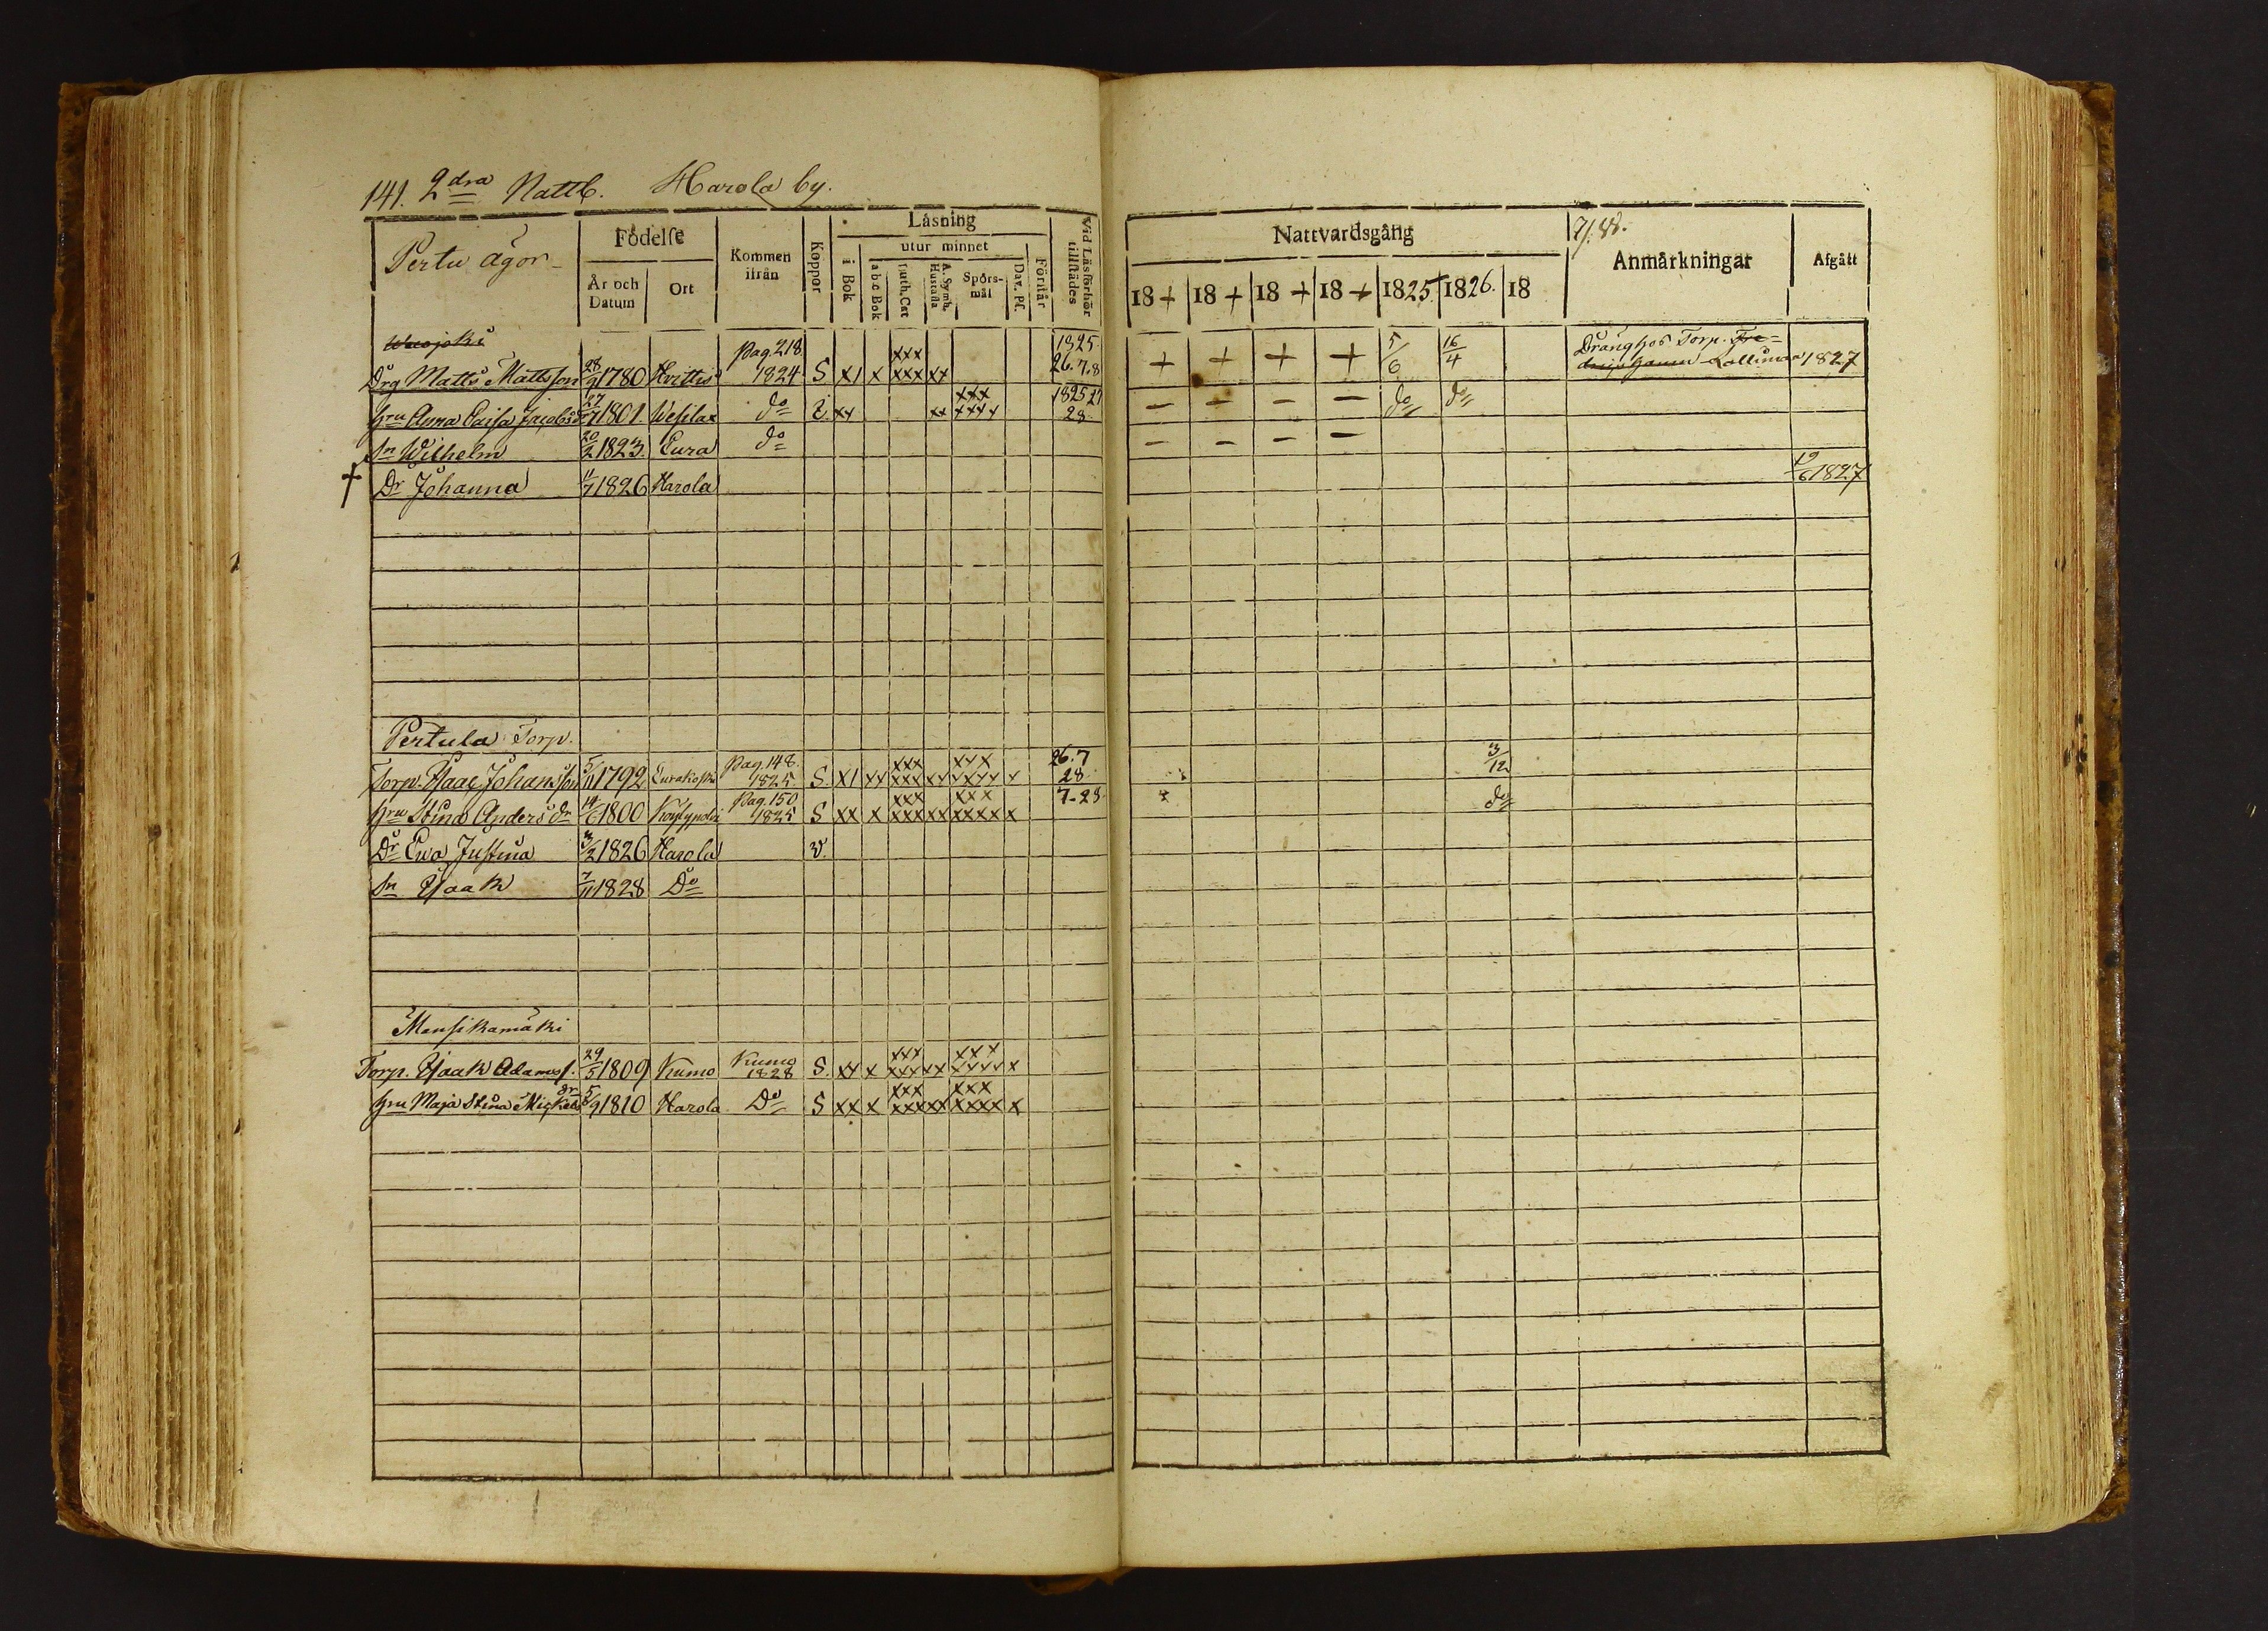 141. 2dra Nattb. Harola by.
Pertu ägor
Födelse
År och Datum
Ort
Kommen ifrån
Koppor
Läsning
i Bok
utur minnet
a b c Bok
Luth. Cat
A. Symb. Hustafla
Spörsmål
Dav. Ps.
Förstår
Vid Läsförhör tillstädes
Nattvardsgång
18+ 18+ 18+ 18+ 1825 1826. 18
7/88.
Anmärkningar
Afgått
pag. 218. xxx 1825
Drg Matts Mattsson 28/9 1780 Hvittis 1824 S x1 x xxx xx 26.7.8 + + + + 5/6 16/4 Dräng hos Torp. 1827
hru Anna Caisa Jacobsd 27/7 1801. Wesilax do xx xx xxx xxxx 1825 27 28 - - - - do do
Sn Wilhelm 20/2 1823. Eura do - - - -
† Dr Johanna 11/7 1826 Harola 19/6 1827
Pertula Torp.
Torp. Isaac Johansson 5/11 1792 Eurakoski pag. 148. 1825 S x1 xx xxx xxx xx xxx xxxx x 26.7 28 3/12
hru Stina Andersdr 14/6 1800 pag. 150 1825 S xx x xxx xxx xx xxx xxxx x 7-28 do
Dr Ewa Justina 3/2 1826 Harola v.
Sn Isaak 7/11 1828 Do
Mansikamäki
Torp. Isaak Adamss. 29/5 1809 Kumo Kumo 1828 S. xx x xxx xxx xx xxx xxxx x
hru Maja Stina Mickelsdr 5/9 1810 Harola Do S xx x xxx xxx xx xxx xxxx x